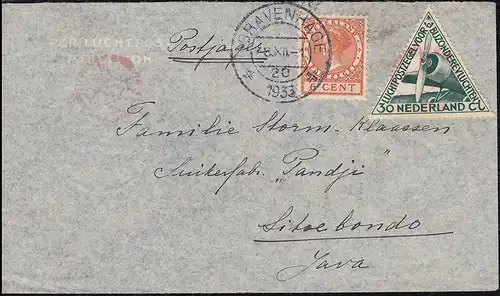 Postjager
'S GRAVENHAGE
8.XII.
20
1933
NEDERLAND
6 CENT
LUCHTPOSTZEGEL VOOR
BIJZONDERE VLUCHTEN
30 NEDERLAND CT
Familie Storm-Klaassen
Suikerfab. "Pandji"
Sitoebondo
Java